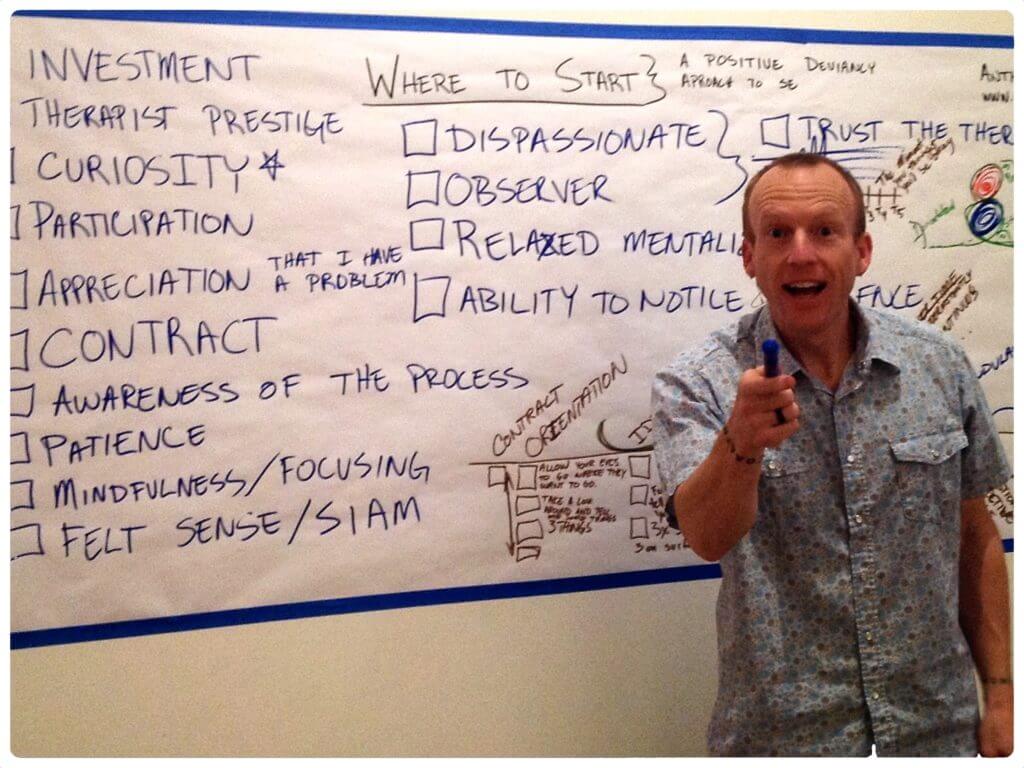 INVESTMENT
THERAPIST PRESTIGE
CURIOSITY
PARTICIPATION
APPRECIATION THAT I HAVE
A PROBLEM
CONTRACT
AWARENESS OF THE PROCESS
PATIENCE
MINDFULNESS/FOCUSING
FELT SENSE/SIAM
WHERE TO START}
A POSITIVE DEVIANCY
APROACH TO SE
DISPASSIONATE
OBSERVER
RELAXED
ABILITY TO NOTICE
TRUST THE
WWW.
CONTRACT
ORIENTATION
ALLOW YOUR EYES
TO GO WHERE THEY
WANT TO GO.
TAKE A LOOK
AROUND AND TELL
3 THINGS